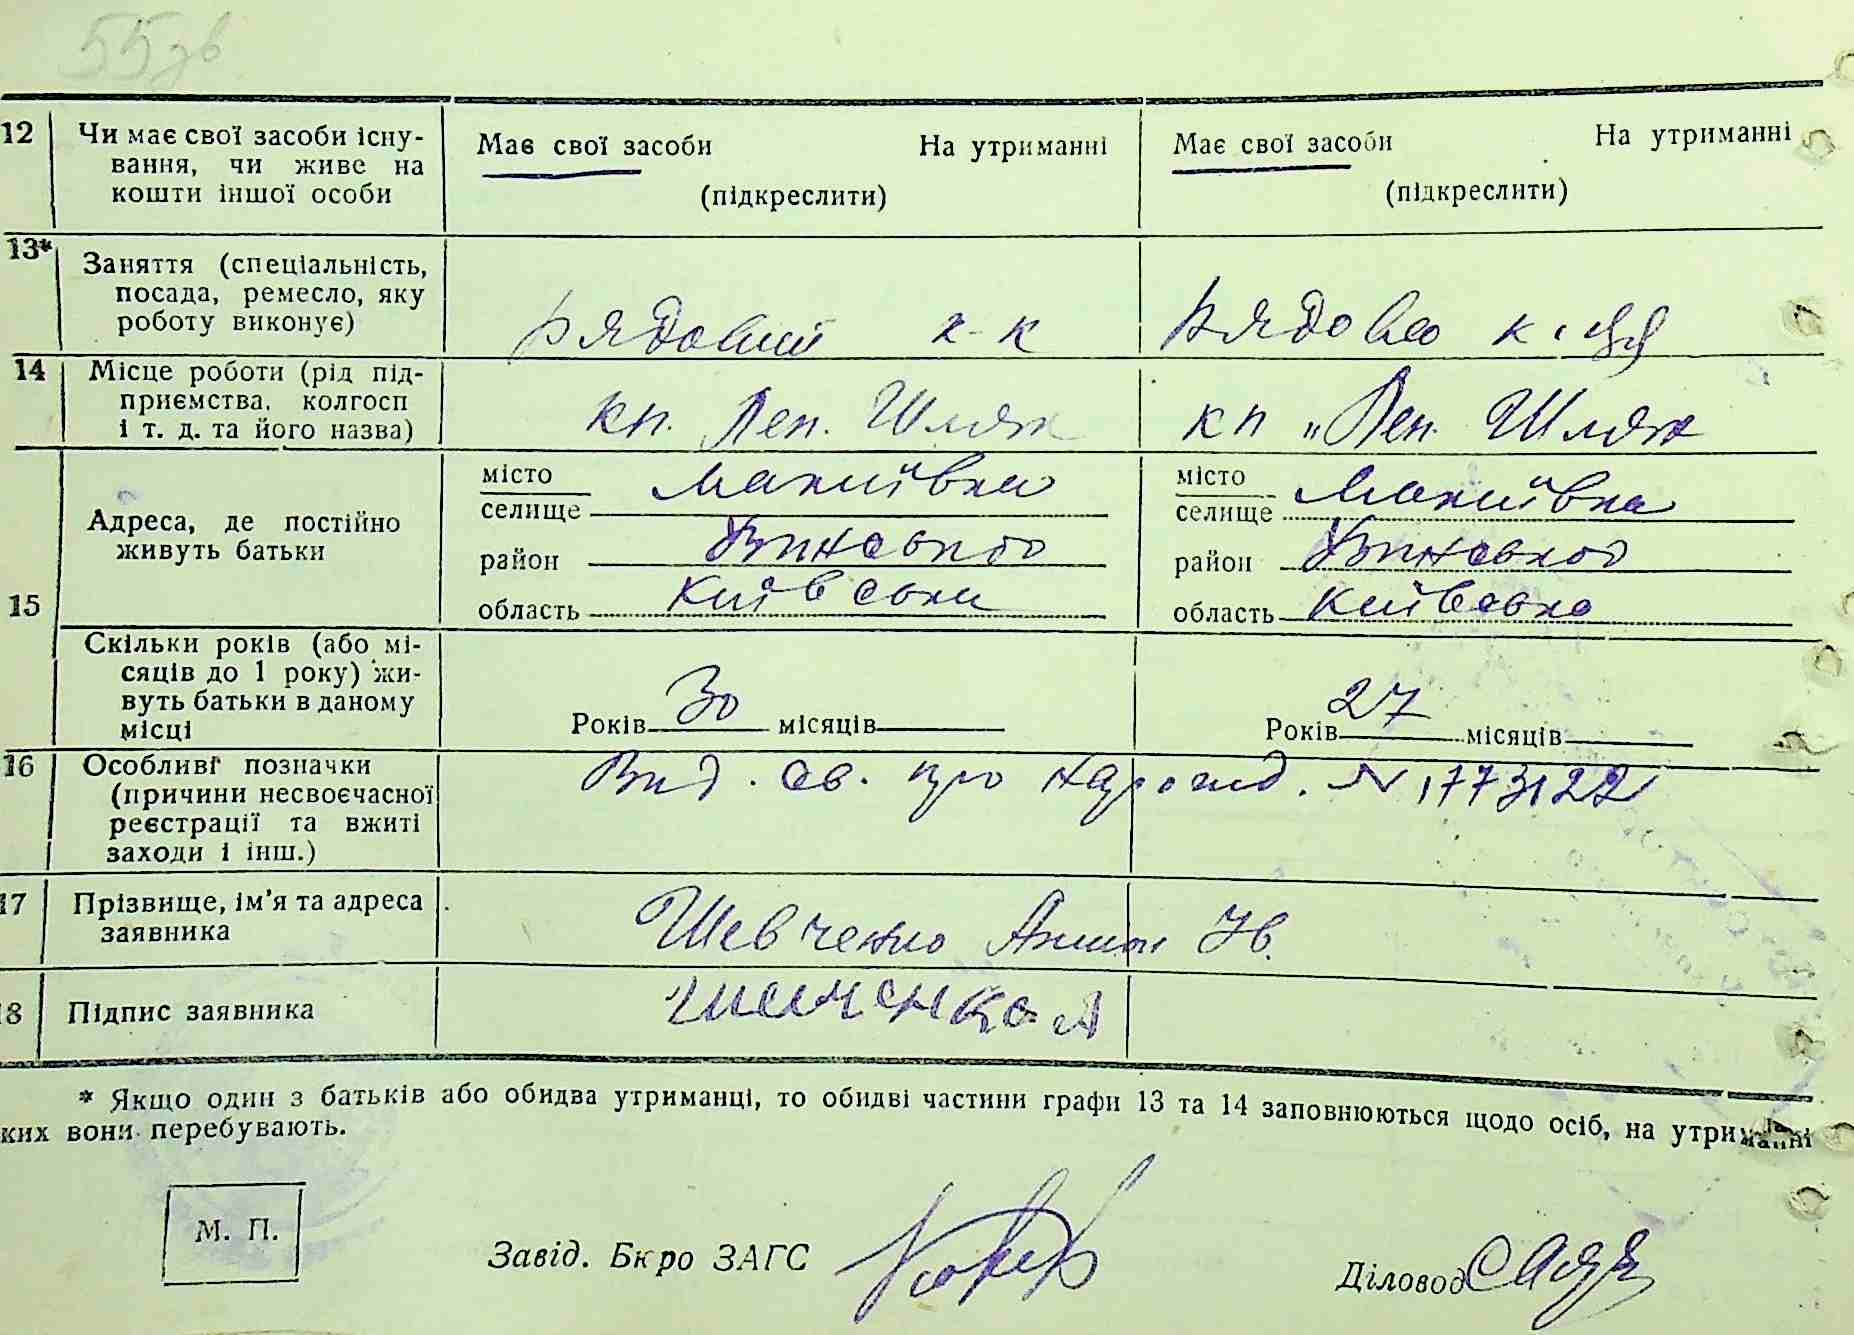 55зв
12 Чи має свої засоби існу-
вання, чи живе на
кошти іншої особи
Має свої засоби На утриманні
(підкреслити)
Має свої засоби На утриманні
(підкреслити)
13* Заняття (спеціальність,
посада, ремесло, яку
роботу виконує)
Рядовий к-к
Рядова к-ця
14 Місце роботи (рід під-
приємства, колгосп
і т. д. та його назва)
кп. Лен. Шлях
кп „Лен. Шлях
15 Адреса, де постійно
живуть батьки
місто
селище Макиївка
район
область Київська
місто
селище Макиївка
район
область Київська
Скільки років (або мі-
сяців до 1 року) жи-
вуть батьки в даному
місці
Років 30 місяців
Років 27 місяців
16 Особливі позначки
(причини несвоєчасної
реєстрації та вжиті
заходи і інш.)
Вид. св. про народ. № 1773122
17 Прізвище, ім’я та адреса
заявника
Шевченко Антон Ів.
18 Підпис заявника
Шевченко А
* Якщо один з батьків або обидва утриманці, то обидві частини графи 13 та 14 заповнюються щодо осіб, на утриманні
ких вони перебувають.
М. П.
Завід. Бюро ЗАГС
Діловод